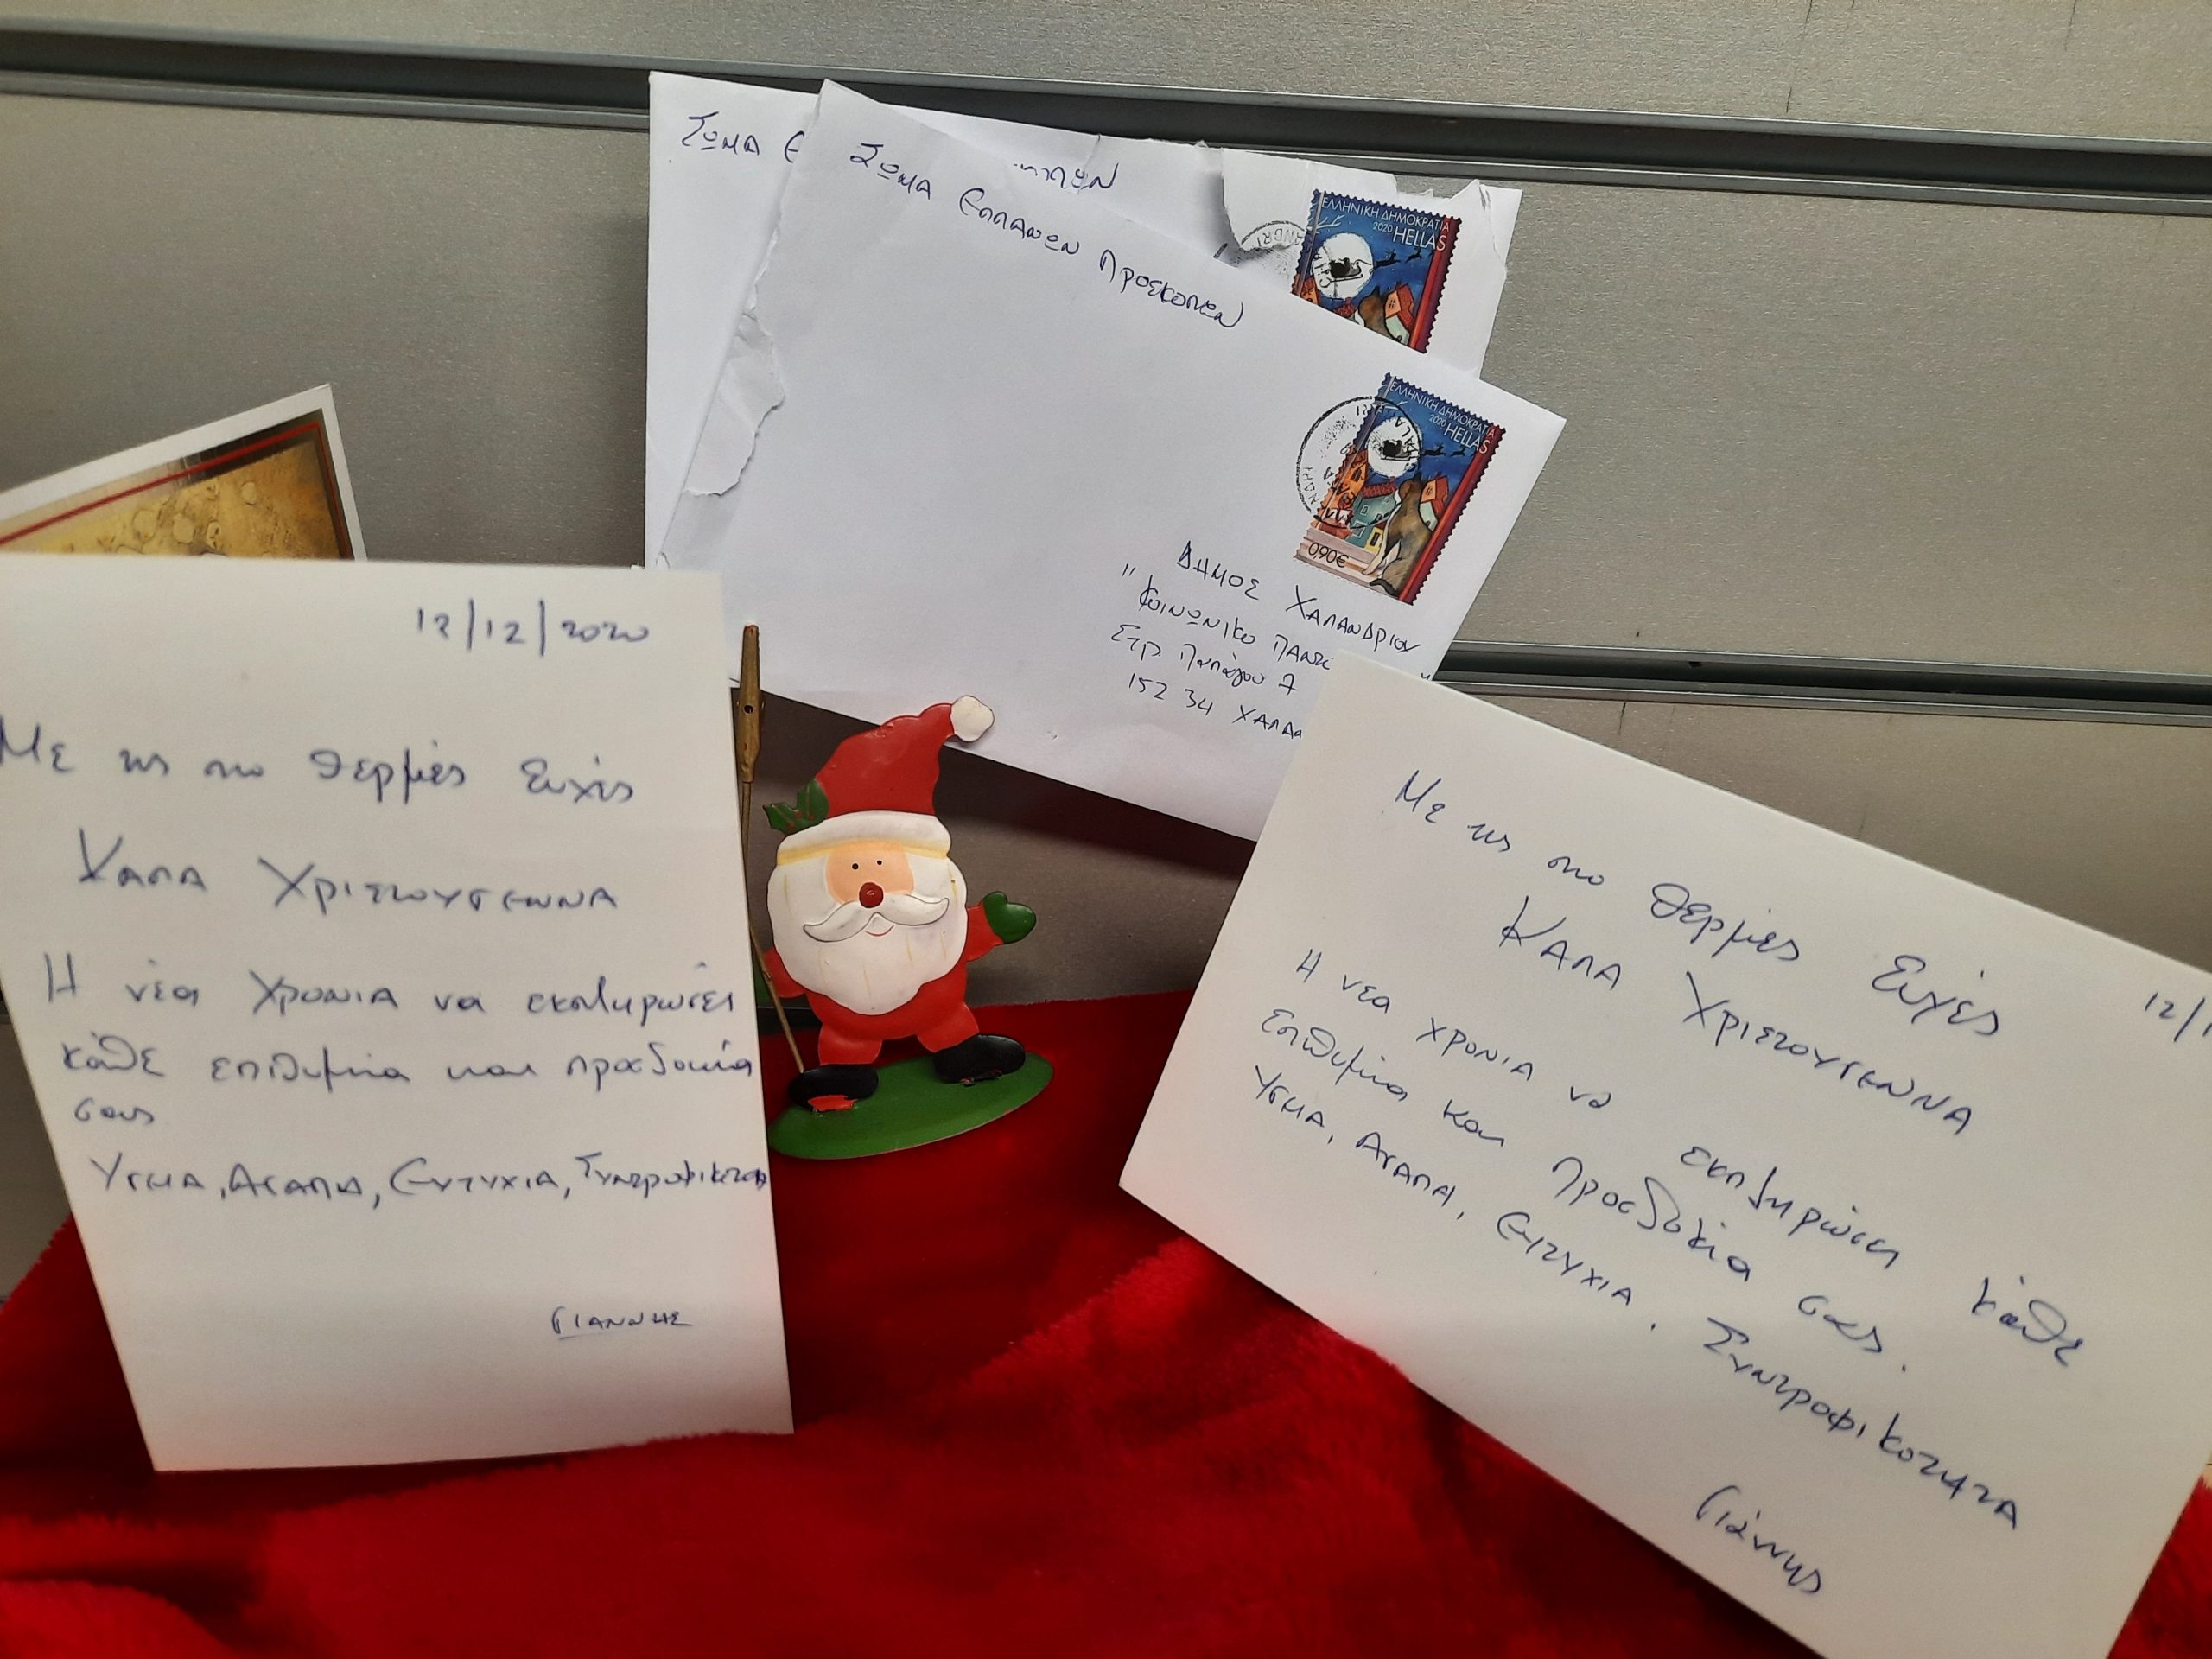 ΣΩΜΑ Ε
ΣΩΜΑ ΕΛΛΑΝΩΝ ΠΡΟΣΚΟΠΩΝ
ΕΛΛΗΝΙΚΗ ΔΗΜΟΚΡΑΤΙΑ
2020 HELLAS
ΕΛΛΗΝΙΚΗ ΔΗΜΟΚΡΑΤΙΑ
2020 HELLAS
0,90€
ΔΗΜΟΣ ΧΑΛΑΝΔΡΙΟΥ
"ΚΟΙΝΩΝΙΚΟ ΠΑΝΤΟ
Στρ. Παπάγου 7
152 34 ΧΑΛΑ
12/12/2020
Με τις πιο θερμές Ευχές
ΚΑΛΑ ΧΡΙΣΤΟΥΓΕΝΝΑ
Η νέα ΧΡΟΝΙΑ να εκπληρώσει
κάθε επιθυμία και προσδοκία
σας
ΥΓΕΙΑ, ΑΓΑΠΗ, ΕΥΤΥΧΙΑ, ΣΥΝΤΡΟΦΙΚΟΤΗΤΑ
ΓΙΑΝΝΗΣ
12/1
Με τις πιο θερμές Ευχές
ΚΑΛΑ ΧΡΙΣΤΟΥΓΕΝΝΑ
Η νεα ΧΡΟΝΙΑ να εκπληρώσει κάθε
Επιθυμία και Προσδοκία σας.
ΥΓΕΙΑ, ΑΓΑΠΗ, ΕΥΤΥΧΙΑ. ΣΥΝΤΡΟΦΙΚΟΤΗΤΑ
Γιάννης